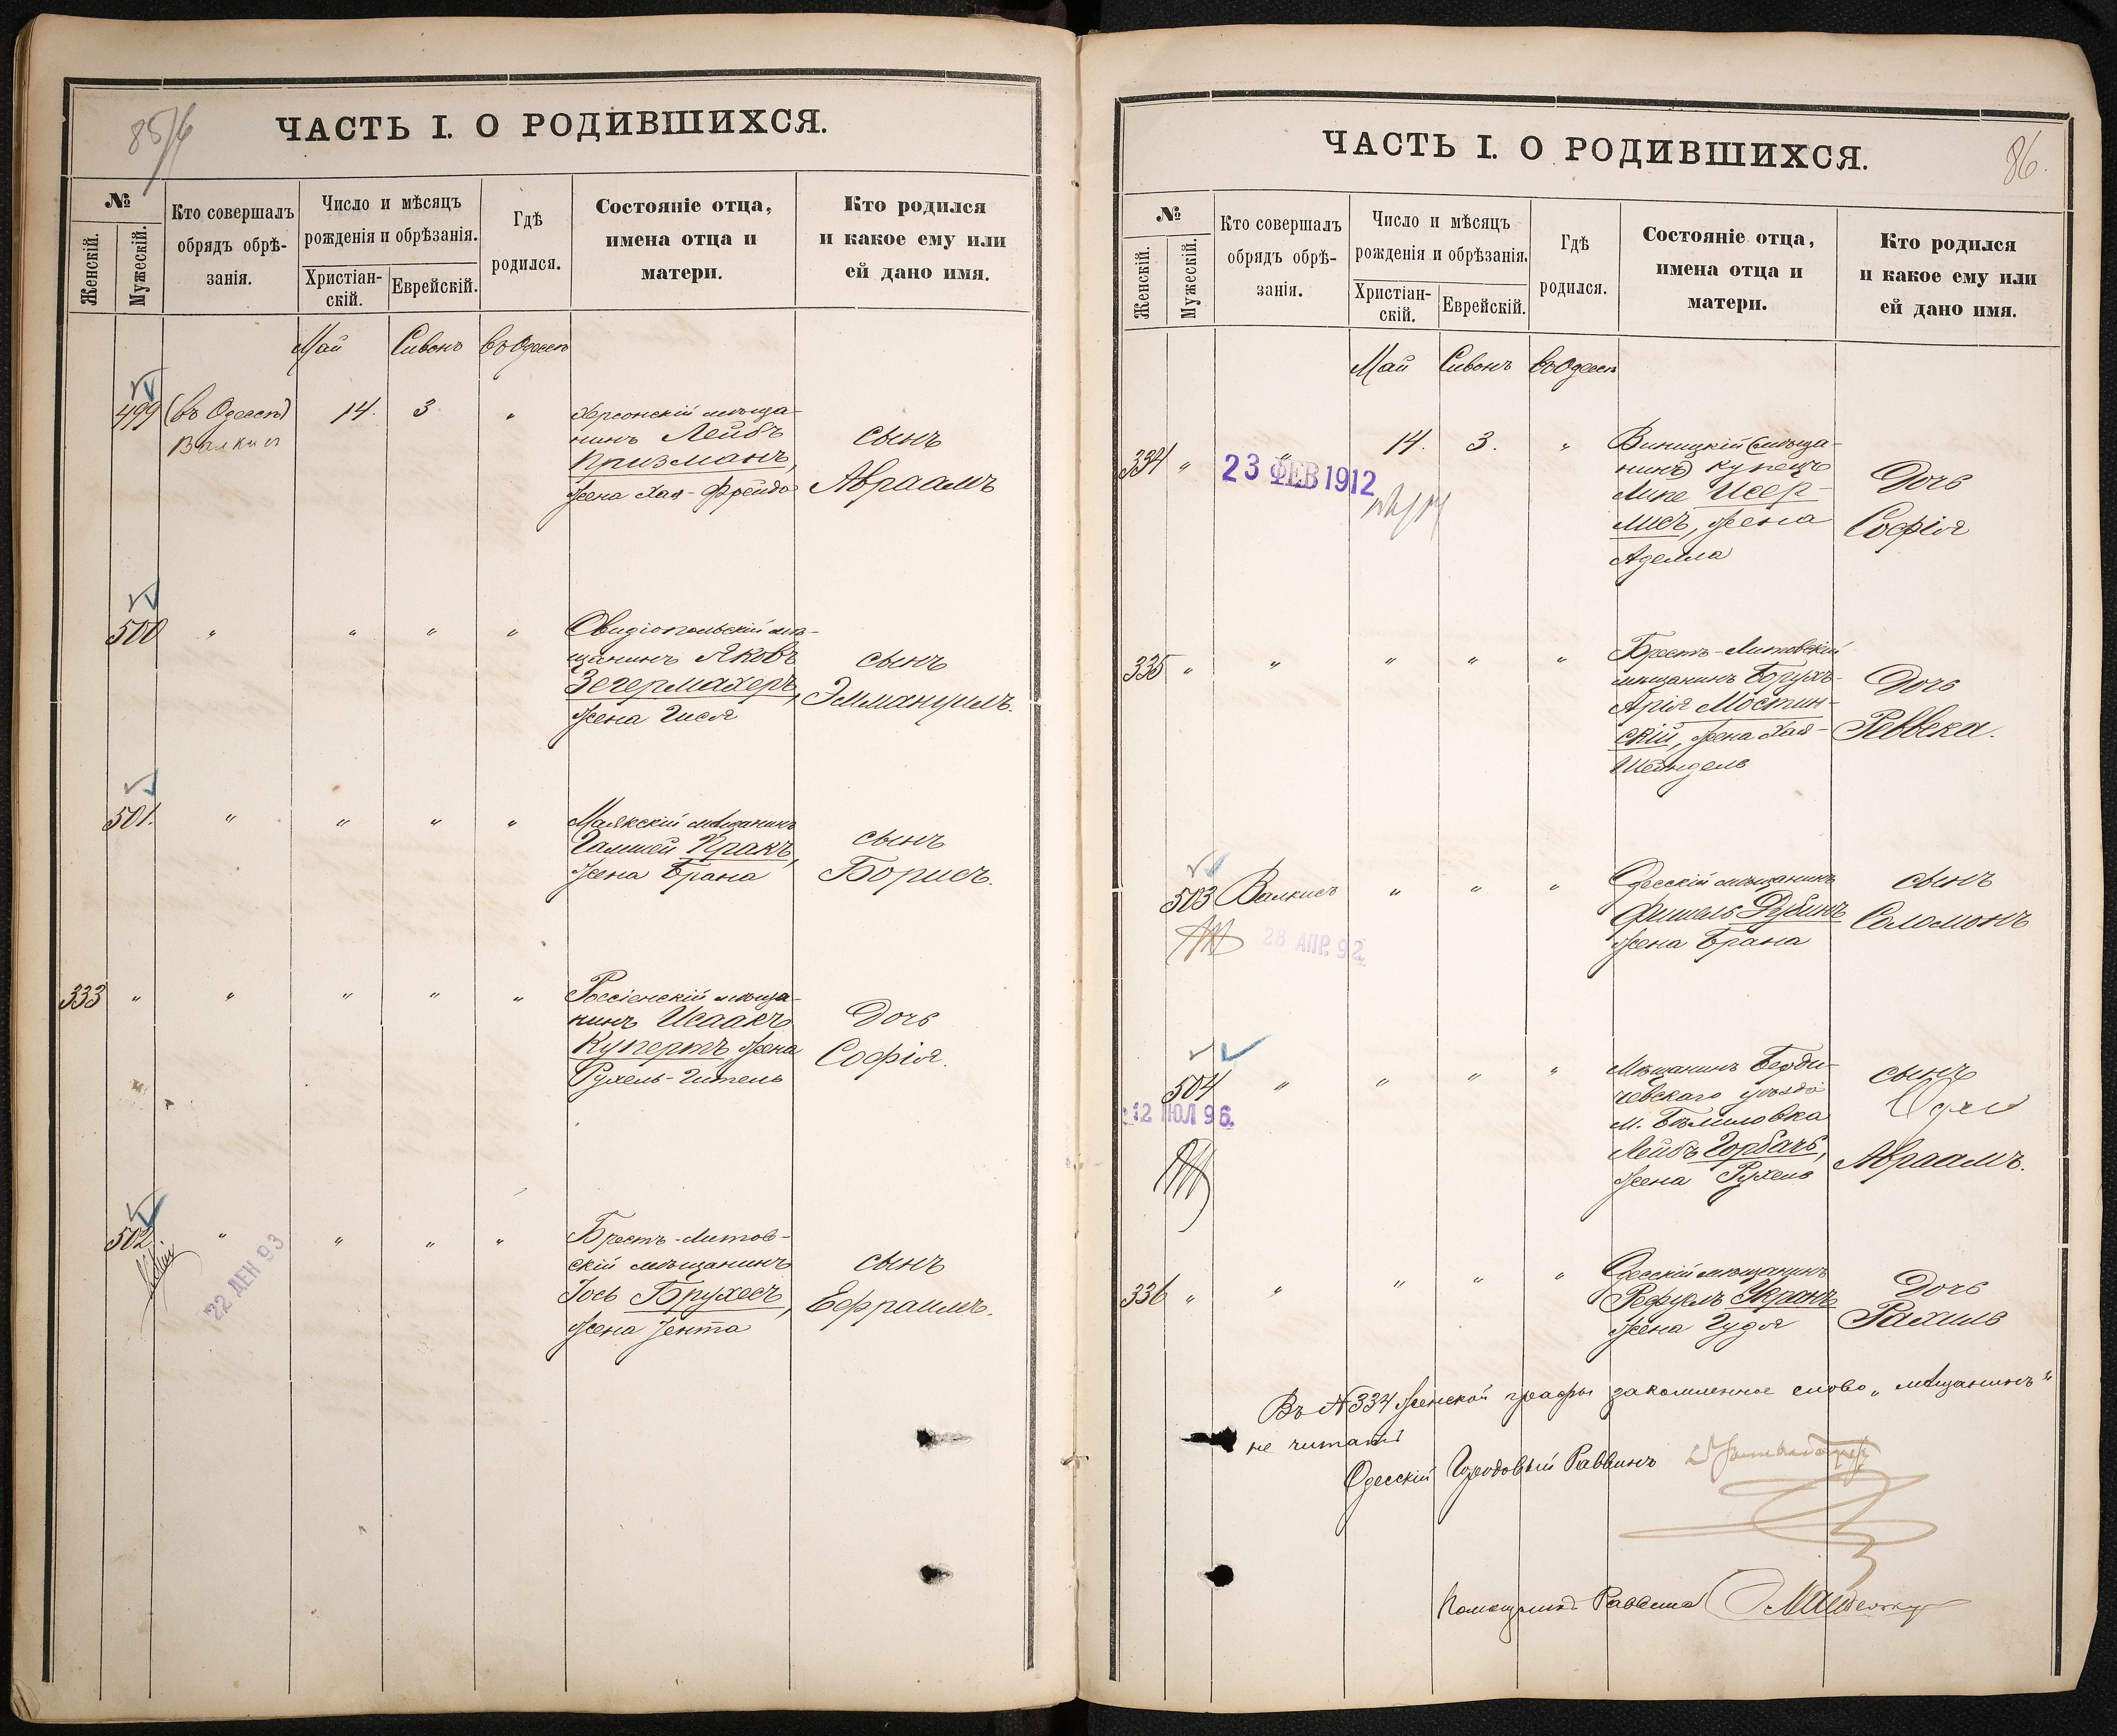 85/6
ЧАСТЬ I. О РОДИВШИХСЯ.
№
Женскій.
Мужескій.
Кто совершалъ
обрядъ обрѣ-
занія.
Число и мѣсяцъ
рожденія и обрѣзанія.
Христіан-
скій.
Еврейскій.
Гдѣ
родился.
Состояніе отца,
имена отца и
матери.
Кто родился
и какое ему или
ей дано имя.
Май Сивонъ въ Одессѣ
499 (въ Одессѣ) 14. 3 "
Валкисъ
Херсонскій мѣща-
нинъ Лейбъ
Призманъ,
жена Хая-Фрейда
сынъ
Авраамъ
500 " " " "
Овидіопольскій мѣ-
щанинъ Яковъ
Зегермахеръ,
жена Гися
сынъ
Эммануилъ.
501. " " " "
Маякскій мѣщанинъ
Гамшей Кракъ,
жена Брана
сынъ
Борисъ.
333 " " " " "
Россіенскій мѣща-
нинъ Исаакъ
Купертъ, жена
Рухель-Гитель
Дочь
Софія.
502 " " " "
22 ДЕН 93
Брестъ-Литов-
скій мѣщанинъ
Іось Брухесъ,
жена Іента
сынъ
Ефраимъ.
86.
ЧАСТЬ I. О РОДИВШИХСЯ.
№
Женскій.
Мужескій.
Кто совершалъ
обрядъ обрѣ-
занія.
Число и мѣсяцъ
рожденія и обрѣзанія.
Христіан-
скій.
Еврейскій.
Гдѣ
родился.
Состояніе отца,
имена отца и
матери.
Кто родился
и какое ему или
ей дано имя.
Май Сивонъ въ Одессѣ
334 " " 14. 3. "
23 ФЕВ 1912
Виницкій (мѣща-
нинъ) купецъ
Липе Исер-
лисъ, жена
Аделла
Дочь
Софія
335 " " " " "
Брестъ-Литовскій
мѣщанинъ Борухъ-
Арія Мостин-
скій, жена Хая-
Шейндель
Дочь
Реввека.
503 Валкисъ " " "
28 АПР. 92
Одесскій мѣщанинъ
Фишель Дубинъ
жена Брана
сынъ
Соломонъ
504 " " " "
12 ЮЛ 96.
Мѣщанинъ Берди-
чевскаго уѣзда
м. Бѣлиловка
Лейбъ Горбачъ,
жена Рухель
сынъ
Авраамъ.
336 " " " " "
Одесскій мѣщанинъ
Рефуель Укранъ
жена Гудя
Дочь
Рахиль
Въ №334 женской графы закомленное слово „мѣщанинъ"
не читать
Одесскій Городовый Раввинъ
Помощникъ Раввина